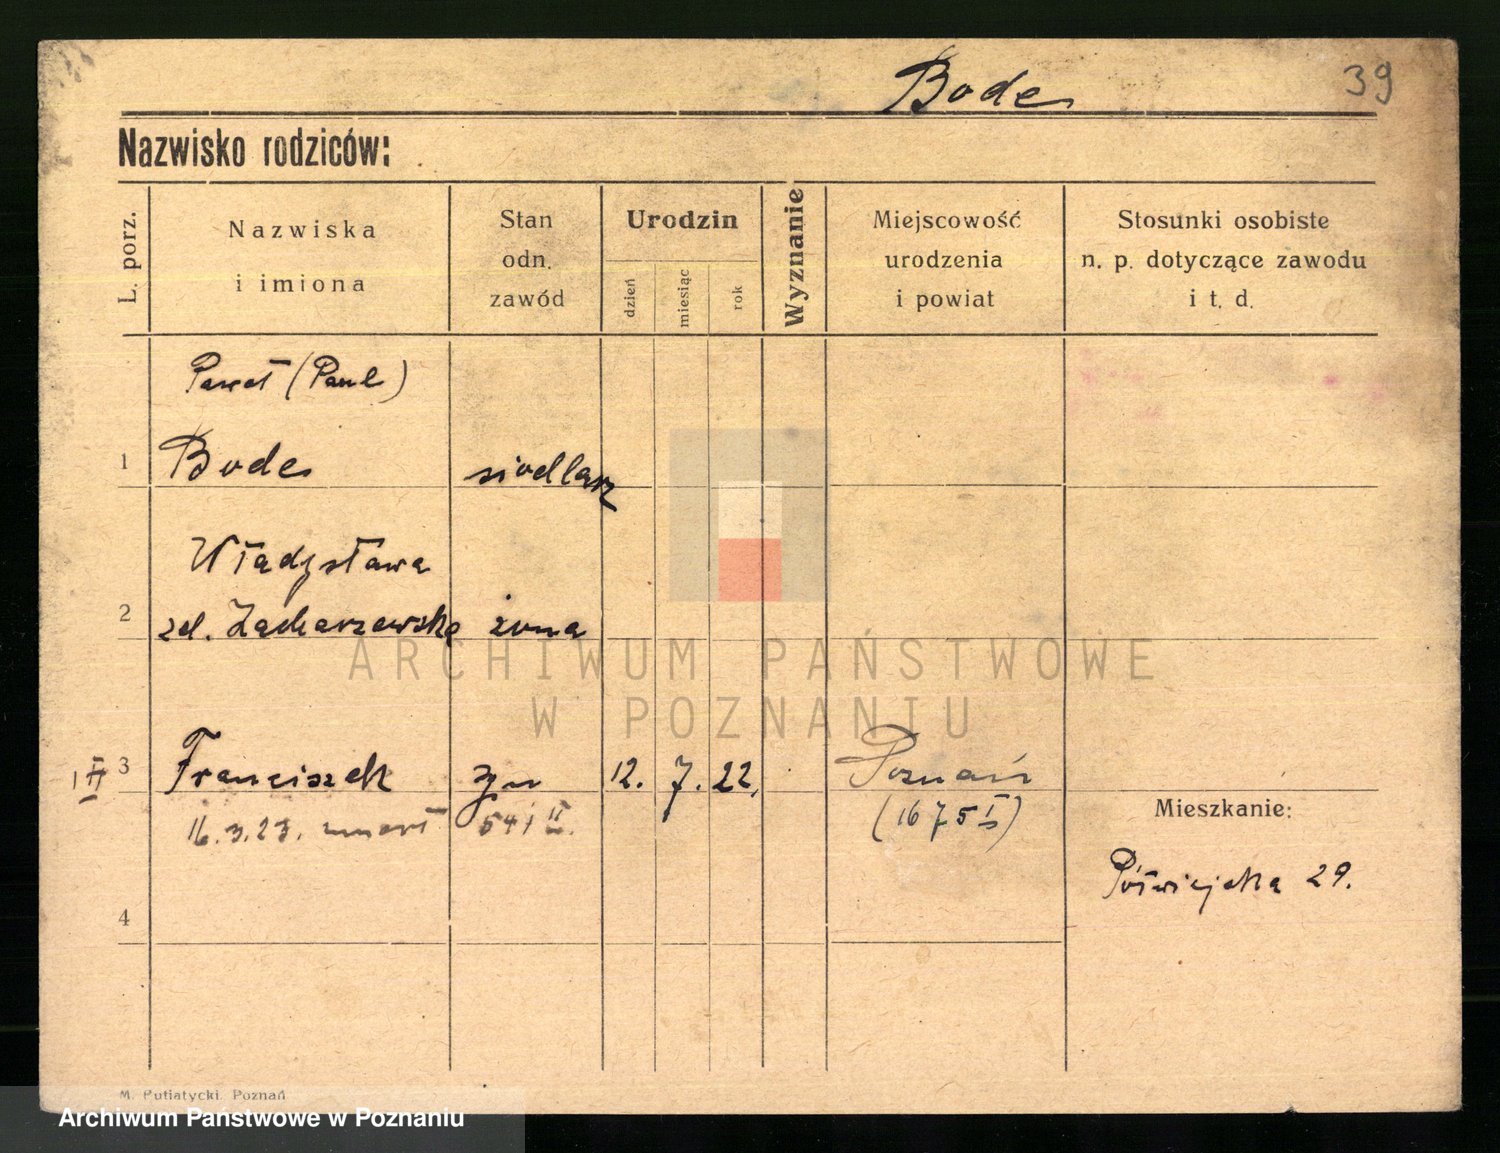 Bode 39
Nazwisko rodziców:
L. porz.
Nazwiska
i imiona
Stan
odn.
zawód
Urodzin
dzień
miesiąc
rok
Wyznanie
Miejscowość
urodzenia
i powiat
Stosunki osobiste
n. p. dotyczące zawodu
i t. d.
Paweł (Paul)
1 Bode siodlarz
Władysława
2 zd. Zacharzewska żona
3 Franciszek syn 12. 7. 22. Poznań
16.3.23. zmarł 541 II. (1675 I)
Mieszkanie:
Półwiejska 29.
4
ARCHIWUM PAŃSTWOWE
W POZNANIU
M. Putiatycki. Poznań
Archiwum Państwowe w Poznaniu